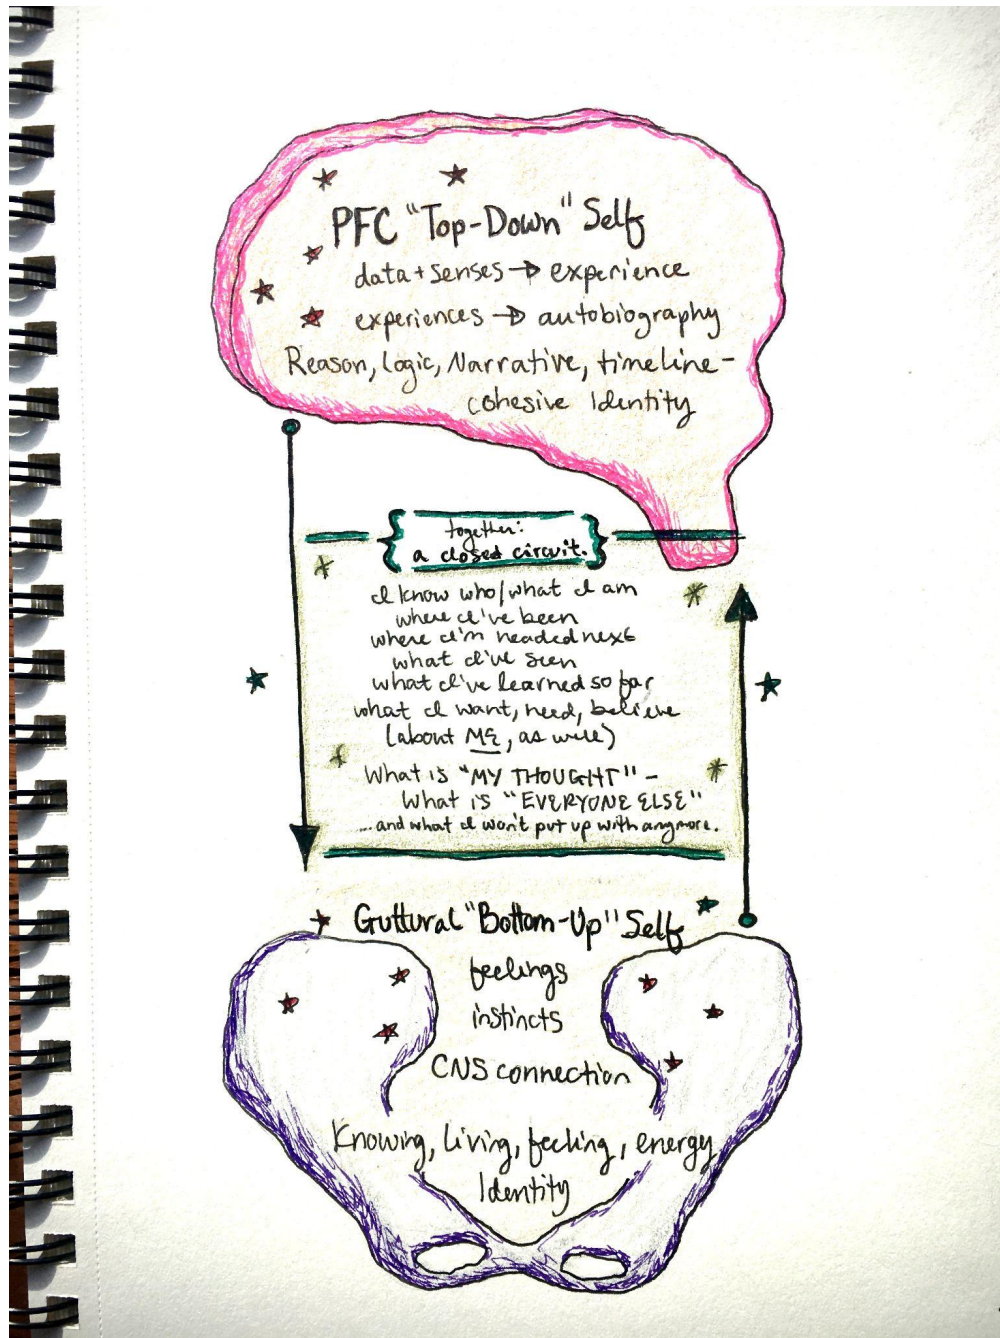 PFC "Top-Down" Self
data + senses → experience
experiences → autobiography
Reason, Logic, Narrative, timeline -
cohesive Identity
together:
a closed circuit.
I know who/what I am
where I've been
where I'm headed next
what I've seen
what I've learned so far
what I want, need, believe
(about ME, as well)
What is "MY THOUGHT" -
What is "EVERYONE ELSE"
...and what I won't put up with anymore.
Guttural "Bottom-Up" Self
feelings
instincts
CNS connection
Knowing, Living, feeling, energy
Identity